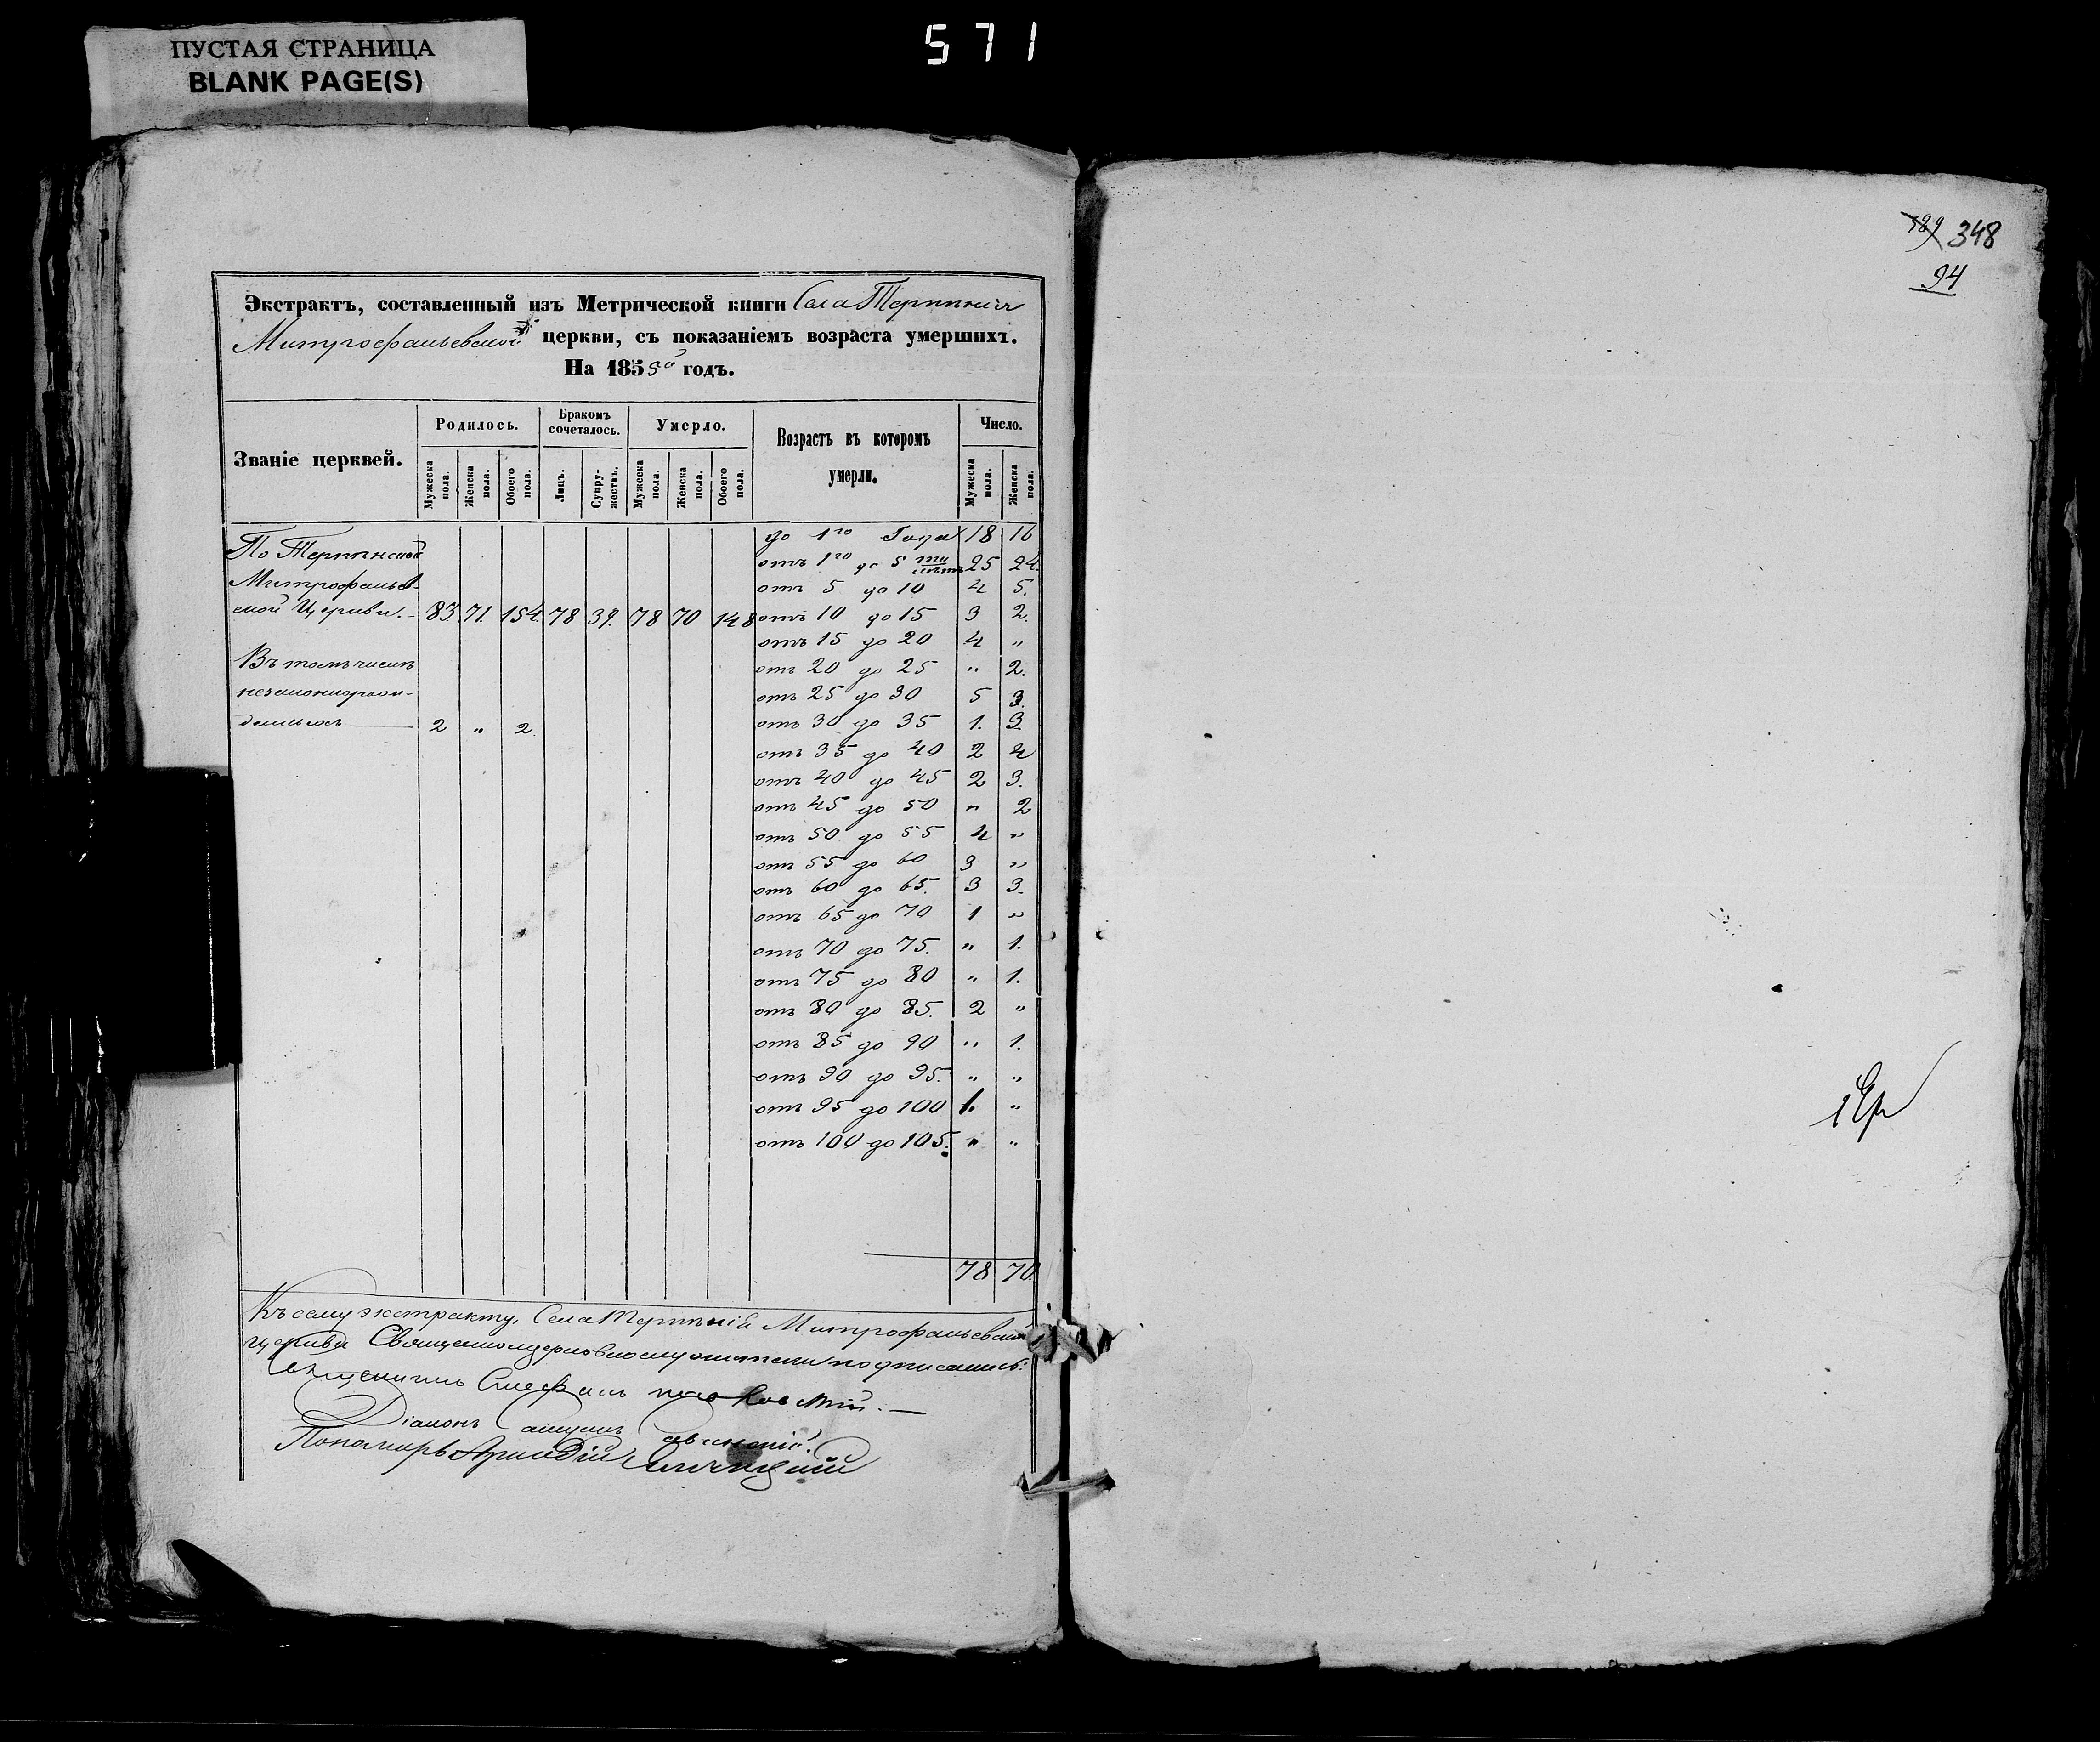 571
ПУСТАЯ СТРАНИЦА
BLANK PAGE(S)
Экстрактъ, составленный изъ Метрической книги Села Терпѣнія
Митрофаньевской церкви, съ показаніемъ возраста умершихъ.
На 1855й годъ.
Званіе церквей.
Родилось.
Мужеска пола.
Женска пола.
Обоего пола.
Бракомъ сочеталось.
Лицъ.
Супружествъ.
Умерло.
Мужеска пола.
Женска пола.
Обоего пола.
Возрастъ въ которомъ умерли.
Число.
Мужеска пола.
Женска пола.
По Терпѣнской
Митрофаньев-
ской Церкви. 83. 71. 154. 78 39. 78 70 148
Въ томъ числѣ
незаконнорож-
денныхъ 2 " 2.
до 1го Года 18 16
отъ 1го до 5ти лѣтъ 25 24.
отъ 5 до 10 4 5.
отъ 10 до 15 3 2.
отъ 15 до 20 4 "
отъ 20 до 25 " 2.
отъ 25 до 30 5 3.
отъ 30 до 35 1. 3.
отъ 35 до 40 2 4
отъ 40 до 45 2 3.
отъ 45 до 50 " 2
отъ 50 до 55 4 "
отъ 55 до 60 3 "
отъ 60 до 65. 3 3.
отъ 65 до 70 1 "
отъ 70 до 75. " 1.
отъ 75 до 80 " 1.
отъ 80 до 85. 2 "
отъ 85 до 90 " 1.
отъ 90 до 95. " "
отъ 95 до 100 1. "
отъ 100 до 105. " "
78 70.
Къ сему экстракту, Села Терпѣнія Митрофаньевской
церкви Священноцерковнослужители подписались:
Священникъ Стефанъ
Діаконъ
Пономарь Аркадій
789 348
94